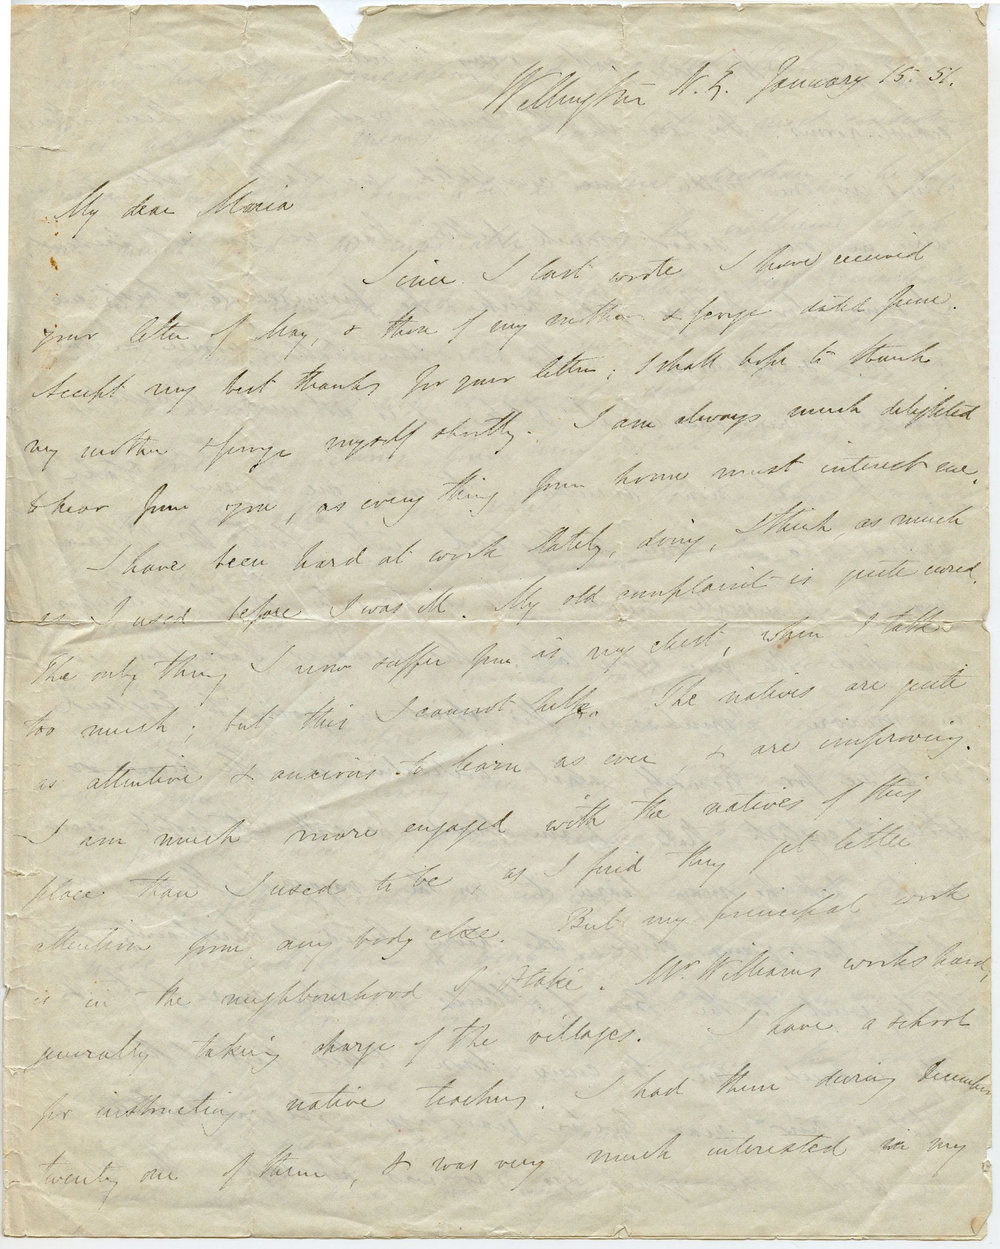 Wellington N.Z. January 15. 51.
My dear Maria
Since I last wrote I have received
your letter of May, & those of my mother & George dated June.
Accept my best thanks for your letter; I shall hope to thank
my mother & George myself shortly. I am always much delighted
to hear from you, as every thing from home must interest me.
I have been hard at work lately, doing, I think, as much
as I used before I was ill. My old complaint is quite cured.
The only thing I now suffer from is my chest, when I talk
too much; but this I cannot help. The natives are quite
as attentive & anxious to learn as ever & are improving.
I am much more engaged with the natives of this
place than I used to be as I find they get little
attention from any body else. But my principal work
is in the neighbourhood of Otaki. Mr Williams works hard,
generally taking charge of the villages. I have a school
for instructing native teachers. I had them during December
twenty one of them, & was very much interested in my